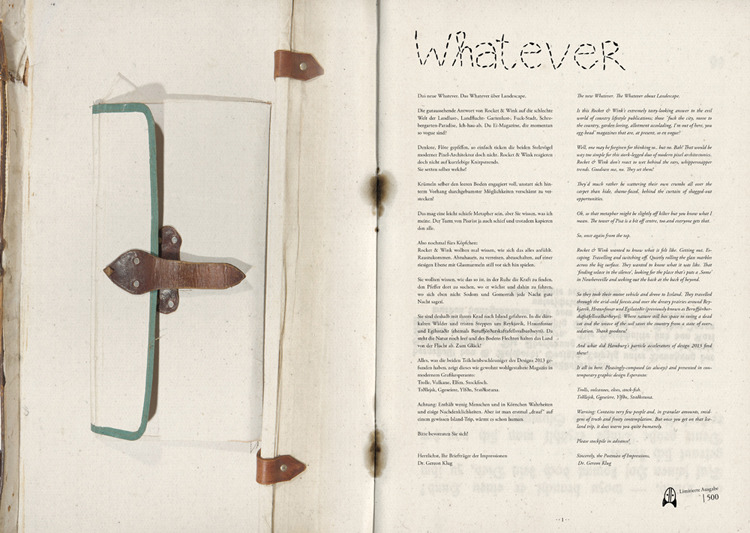 Whatever
Das neue Whatever. Das Whatever über Landscape.
Die gutaussehende Antwort von Rocket & Wink auf die schlechte
Welt der Landlust-, Landflucht- Gartenlust- Fuck-Stadt, Schre-
bergarten-Paradise, Ich-hau-ab, Du E-Magazine, die momentan
so vogue sind!
Direkte, Flöte gepfiffen, so einfach ticken die beiden
moderner Pixel-Architektur doch nicht. Rocket & Wink reagieren
doch nicht auf
Sie serten selber welche!
Krümeln selber den leeren Boden engagiert voll, anstatt sich hin-
term Vorhang durchgebummter Möglichkeiten verschämt zu ver-
stecken!
Das mag eine leicht schiefe Metapher sein, aber Sie wissen, was ich
meine. Der Turm von Pisa ist ja auch schief und trotzdem kapieren
den alle.
Also nochmal fürs Köpfchen:
Rocket & Wink wollten mal wissen, wie sich das alles anfühlt.
Rauszukommen. Abzuhauen, zu verreisen, abzuschalten, auf einer
riesigen Ebene mit Glasmurmeln still vor sich hin spielen.
Sie wollten wissen, wie das so ist, in der Ruhe die Kraft zu finden,
den Pfeffer dort zu suchen, wo er wächst und dahin zu fahren,
wo sich eben nicht Sodom und Gomorrah jede Nacht gute
Nacht sagen.
Sie sind deshalb mit ihrem Krad nach Island gefahren. In die dürr-
kalten Wälder und tristen Steppen um Reykjavik, Honzofossur
und Egilsstadir
steht die Natur noch leer und des Bodens Flechten halten das Land
von der Flucht ab. Zum Glück!
Alles, was die beiden Teilchenbeschleuniger des Designs 2013 ge-
funden haben, zeigt dieses wie gewohnt wohlgestaltete Magazin in
modernem Grafikesperanto:
Trolle, Vulkane, Elfen, Stockfisch.
Achtung: Enthält wenig Menschen und in Körnchen Wahrheiten
und eisige Nachdenklichkeiten. Aber ist man erstmal „drauf“ auf
einem gewissen Island-Trip, wärmt es schon human.
Bitte bevorraten Sie sich!
Herzlichst, Ihr Briefträger der Impressionen
Dr. Gereon Klug
The new Whatever. The Whatever about Landscape.
Is this Rocket & Wink's extremely tasty-looking answer to the evil
world of country lifestyle publications; those 'fuck the city, move to
the country, garden loving, allotment ococlading, I'm out of here, you
egg-head' magazines that are, at present, so en vogue?
Well, one may be forgiven for thinking so.. but no. Bah! That would be
way too simple for this switch-legged duo of modern pixel architectonics.
Rocket & Wink don't react to wet behind the ears, whippersnapper
trends. Goodness no, no. They set them!
They'd much rather be scattering their own crumbs all over the
carpet than hide, shame-faced, behind the curtain of shagged-out
opportunities.
Ok, so that metaphor might be slightly off kilter but you know what I
mean. The tower of Pisa is a bit off centre, too and everyone gets that.
So, once again from the top.
Rocket & Wink wanted to know what it felt like. Getting out. Es-
caping. Travelling and switching off. Quietly rolling the glass marbles
across the big surface. They wanted to know what it was like. That
'finding solace in the silence', looking for the place that's got a. Some'
in Nowheresville and seeking out the back at the back of beyond.
So they took their motor vehicle and drove to Iceland. They travelled
through the arid-cold forests and over the dreary prairies around Rey-
kjavik, Honzofossur and Egilsstadir
Where nature still has space to swing a dead
cat and the lichens of the soil saves the country from a state of over-
Thank goodness!
And what did Hamburg's particle accelerators of design 2013 find
there?
It is all in here. Pleasingly-composed (as always) and presented in con-
temporary graphic design Esperanto:
Trolls, volcanoes, elves, stock-fish.
Warning: Contains very few people and, in granular amounts, smid-
gens of truth and frosty contemplation. But once you get on that Ice-
land trip, it does warm you quite humanely.
Please stockpile in advance!
Sincerely, the Postman of Impressions,
Dr. Gereon Klug
Limitierte Ausgabe
| 500